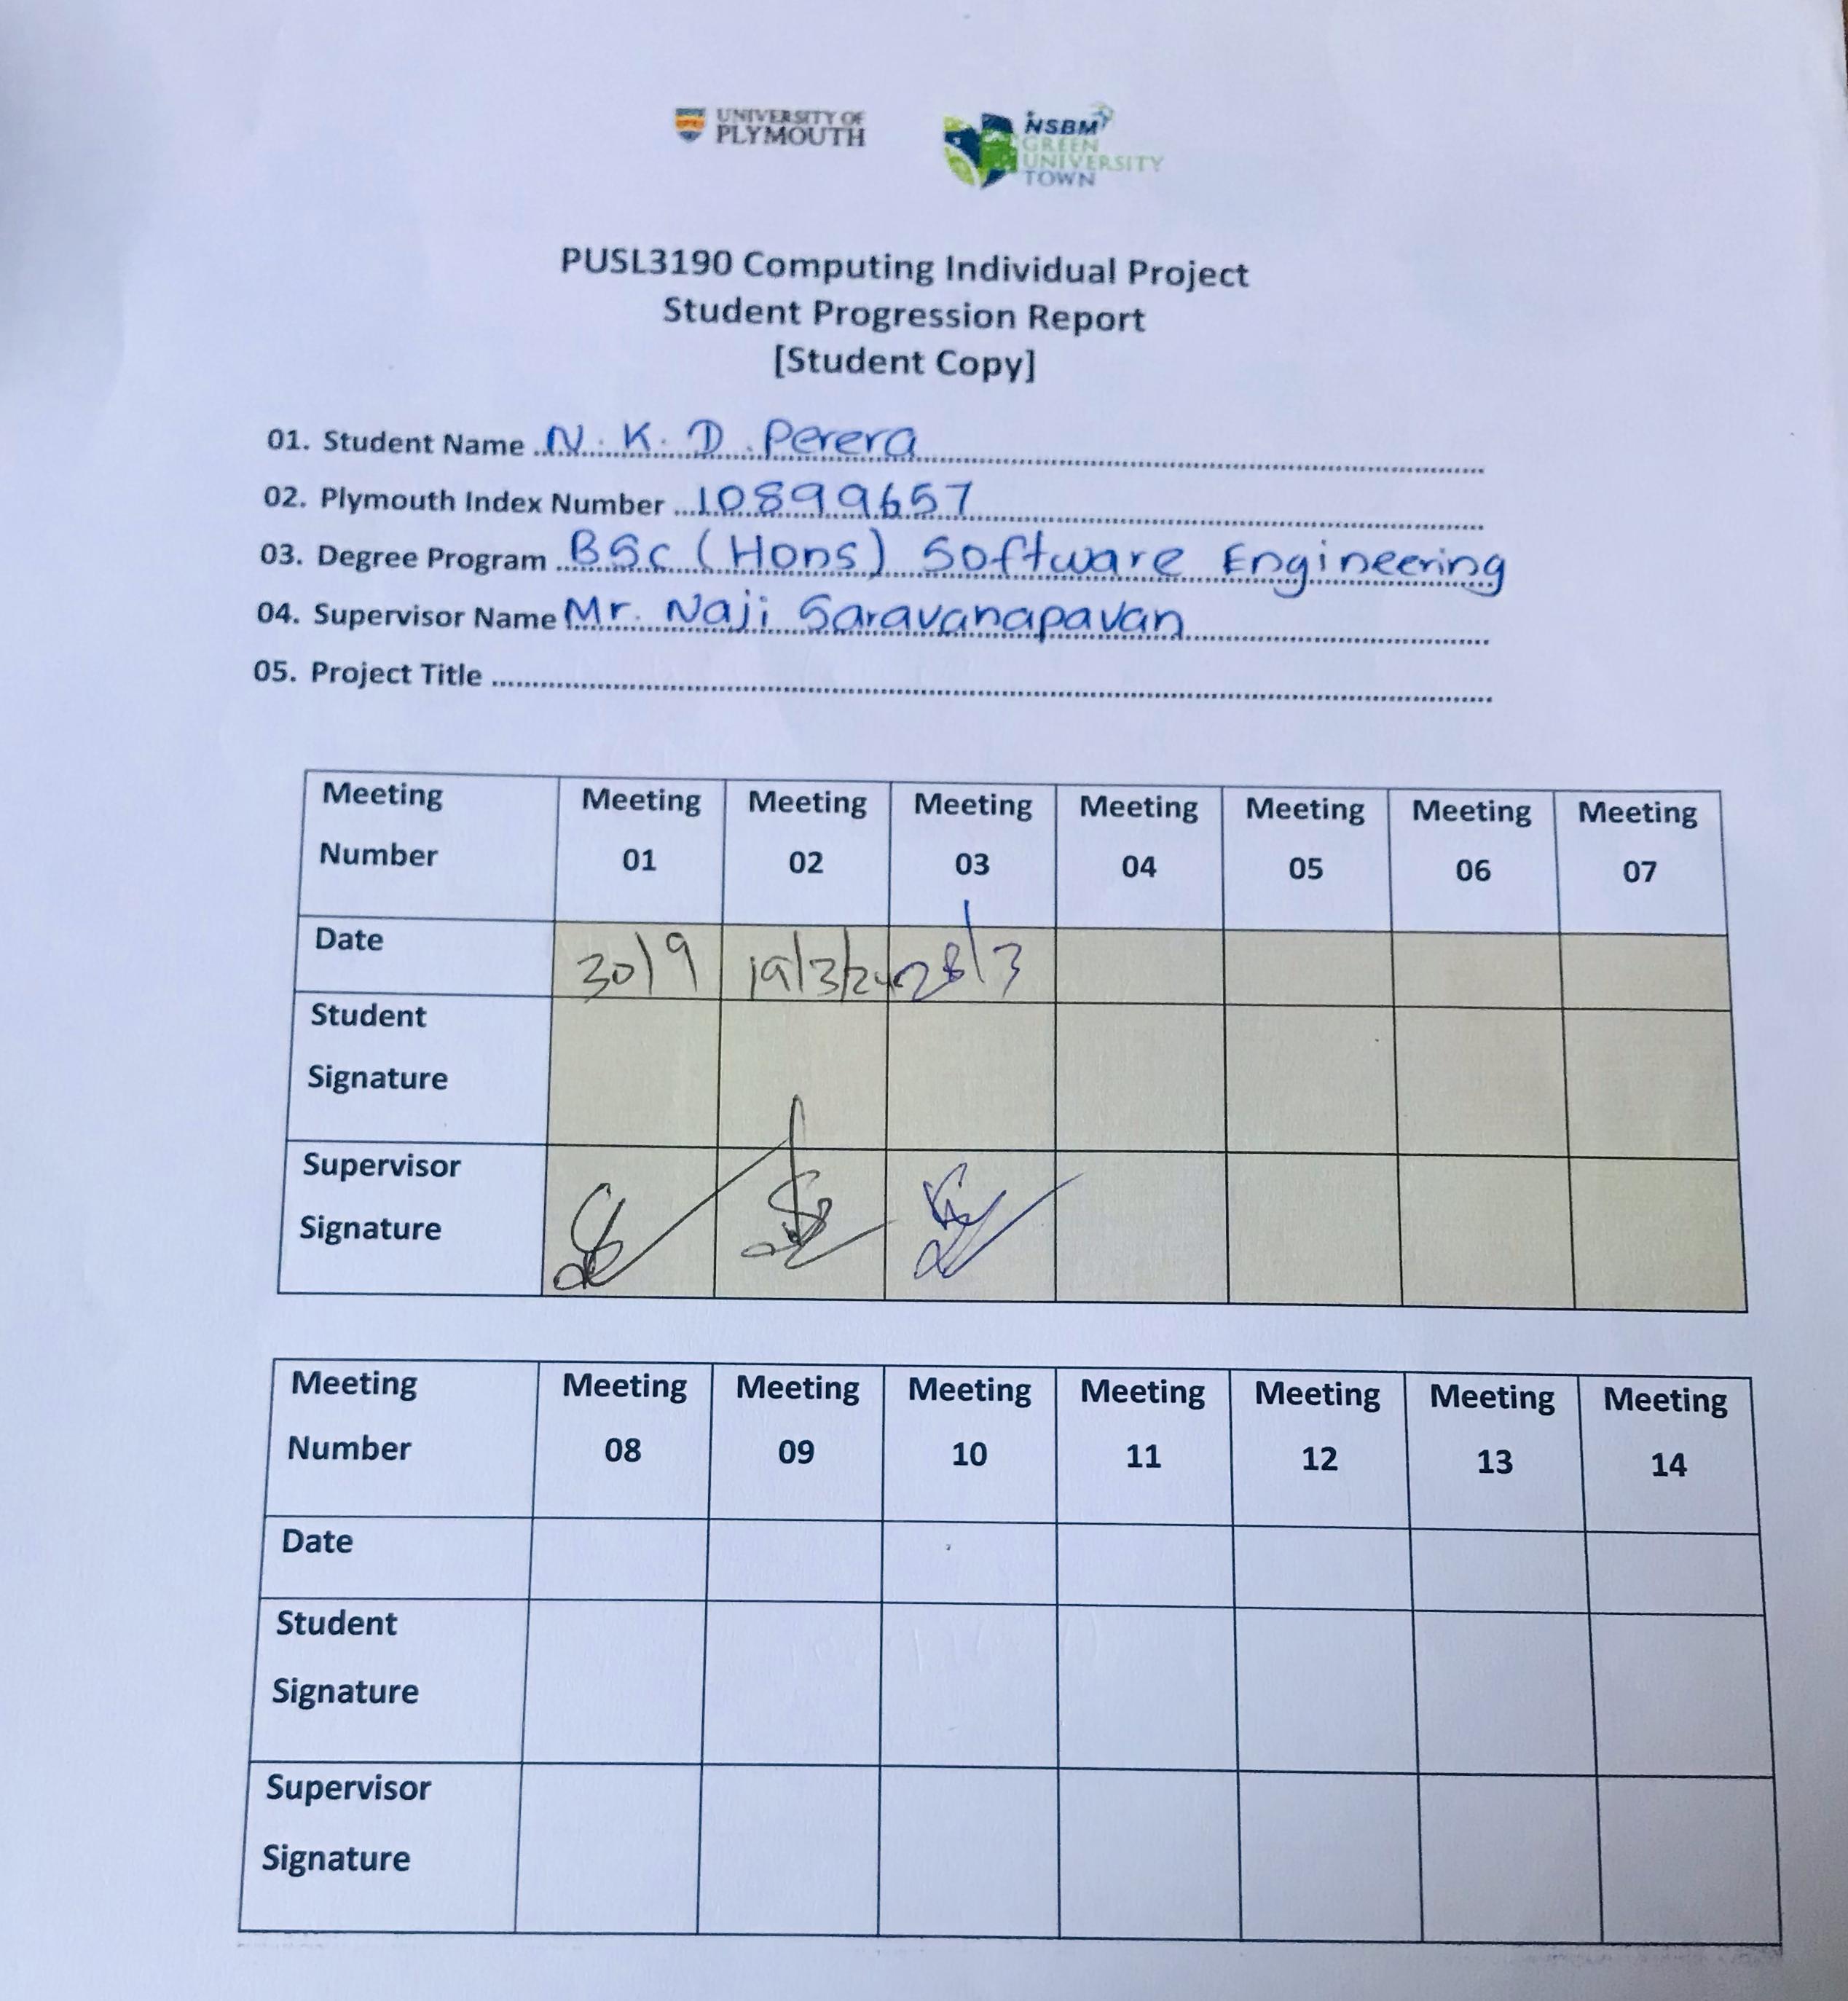 UNIVERSITY OF
PLYMOUTH
NSBM
GREEN
UNIVERSITY
TOWN
PUSL3190 Computing Individual Project
Student Progression Report
[Student Copy]
01. Student Name N. K. D. Perera
02. Plymouth Index Number 10899657
03. Degree Program BSc (Hons) Software Engineering
04. Supervisor Name Mr. Naji Saravanapavan
05. Project Title
Meeting Number Meeting 01 Meeting 02 Meeting 03 Meeting 04 Meeting 05 Meeting 06 Meeting 07
Date 30/9 19/3/24 28/3
Student Signature
Supervisor Signature
Meeting Number Meeting 08 Meeting 09 Meeting 10 Meeting 11 Meeting 12 Meeting 13 Meeting 14
Date
Student Signature
Supervisor Signature